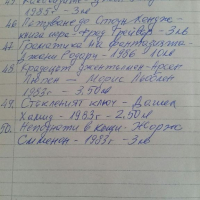 1985г - 3лв
46. Пътуване до Стоун Хендж -
книга игра - Фред Грейвър - 3лв
47. Граматика на фантазията -
Джани Родари - 1986 10лв
48. Крадецът джентълмен - Арсен
Люпен - Морис Льоблан
1983г - 3.50лв
49. Стъкленият ключ - Дашел
Хамит - 1983г - 2.50лв
50. Непознати в къщи - Жорж
Сименон - 1983г - 3лв